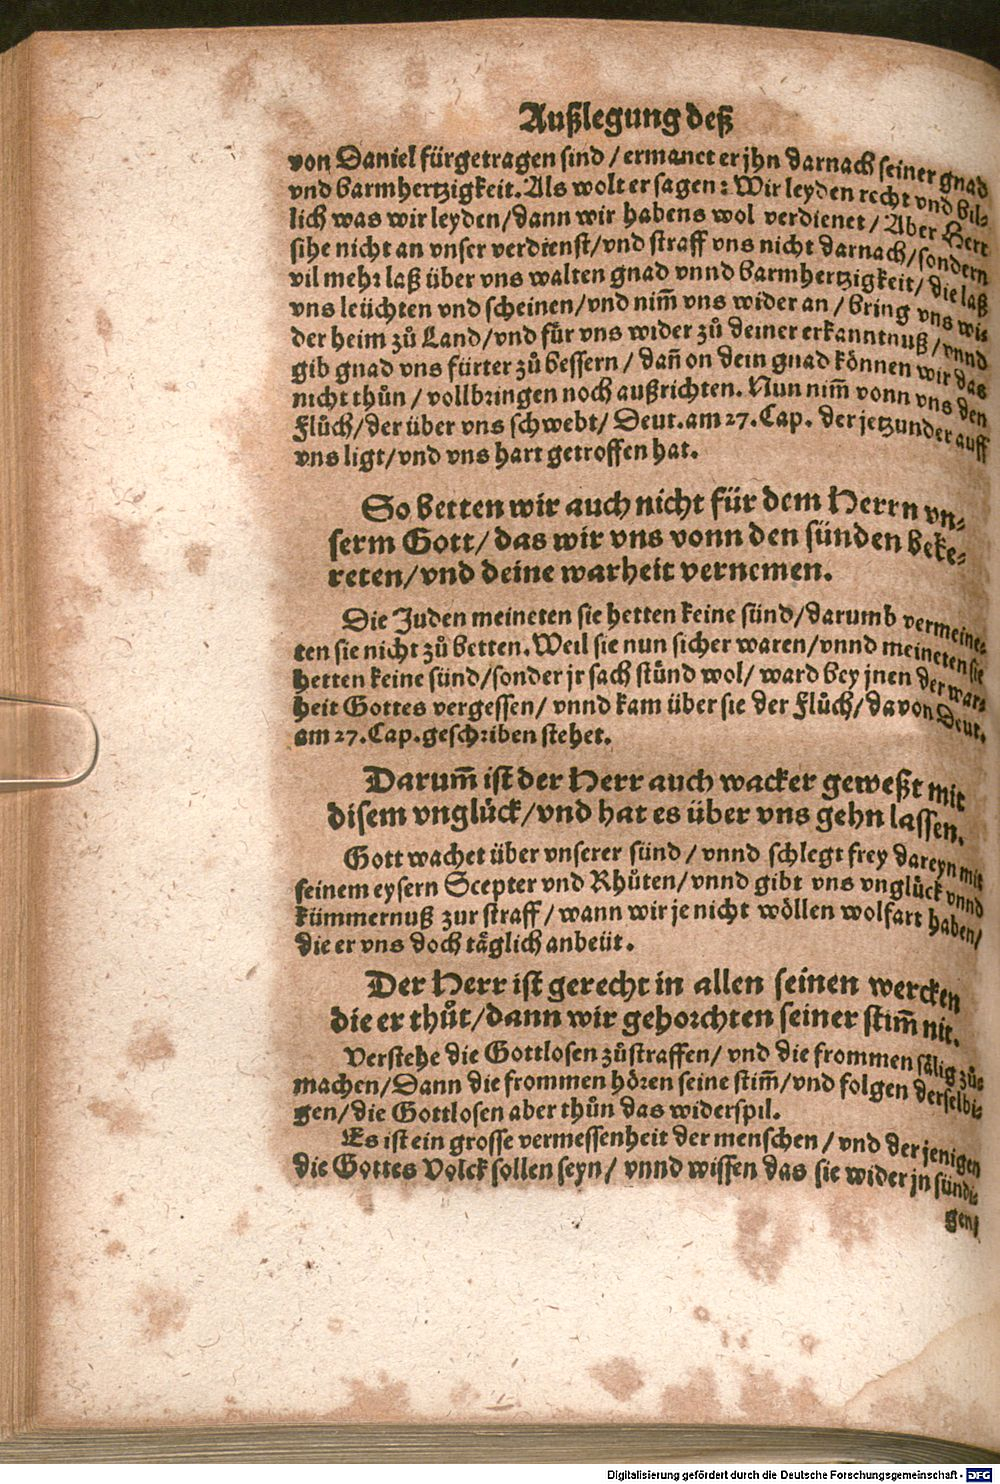 Außlegung deß
von Daniel fürgetragen sind / ermanet er jhn darnach seiner gnad
vnd barmhertzigkeit. Als wolt er sagen: Wir leyden recht vnd bil-
lich was wir leyden/dann wir habens wol verdienet / Aber Herr
sihe nicht an vnser verdienst/vnd straff vns nicht darnach/sondern
vil mehr laß über vns walten gnad vnnd barmhertzigkeit/ die laß
vns leüchten vnd scheinen/vnd nim̃ vns wider an / bring vns wi-
der heim zů Land/vnd für vns wider zů deiner erkanntnuß/vnnd
gib gnad vns fürter zů bessern / dañ on dein gnad können wir das
nicht thůn / vollbringen noch außrichten. Nun nim̃ vonn vns den
Flůch/der über vns schwebt/ Deut.am 27.Cap. der jetzunder auff
vns ligt/vnd vns hart getroffen hat.
So betten wir auch nicht für dem Herrn vn-
serm Gott/das wir vns vonn den sünden beke-
reten/vnd deine warheit vernemen.
Die Juden meineten sie hetten keine sünd/darumb vermeine-
ten sie nicht zů betten. Weil sie nun sicher waren/vnnd meineten sie
hetten keine sünd/sonder jr sach stůnd wol/ ward bey jnen der war-
heit Gottes vergessen/ vnnd kam über sie der Flůch/davon Deut.
am 27.Cap.geschriben stehet.
Darum̃ ist der Herr auch wacker geweßt mit
disem vnglück/vnd hat es über vns gehn lassen.
Gott wachet über vnserer sünd / vnnd schlegt frey dareyn mit
seinem eysern Scepter vnd Rhůten/vnnd gibt vns vnglück vnnd
kümmernuß zur straff / wann wir je nicht wöllen wolfart haben/
die er vns doch täglich anbeüt.
Der Herr ist gerecht in allen seinen wercken
die er thůt/dann wir gehorchten seiner stim̃ nit.
Verstehe die Gottlosen zů straffen/ vnd die frommen sälig zů-
machen/Dann die frommen hören seine stim̃/vnd folgen derselbi-
gen/die Gottlosen aber thůn das widerspil.
Es ist ein grosse vermessenheit der menschen / vnd der jenigen
die Gottes Volck sollen seyn/ vnnd wissen das sie wider jn sündi-
gen/
Digitalisierung gefördert durch die Deutsche Forschungsgemeinschaft - DFG